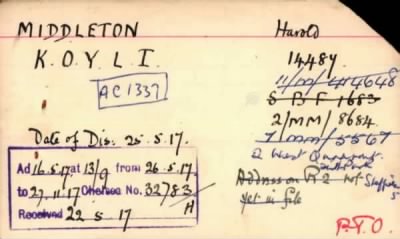 MIDDLETON Harold
K.O.Y.L.I. 14489.
AC 1337
11/M/414648
S B F 1683
2/MM/8684
Date of Dis: 25.5.17. 7/MM/5567
2 West
Ad 16.5.17 at 13/9 from 26.5.17.
to 27.11.17 Chelsea No. 32783
H
Address on R 2 not
Received 22 5 17 yet in file
P.T.O.